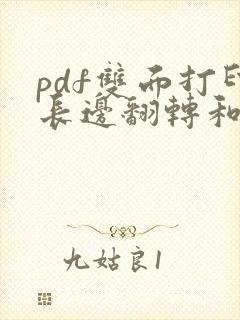 pdf雙面打印
長邊翻轉和
九姑良1